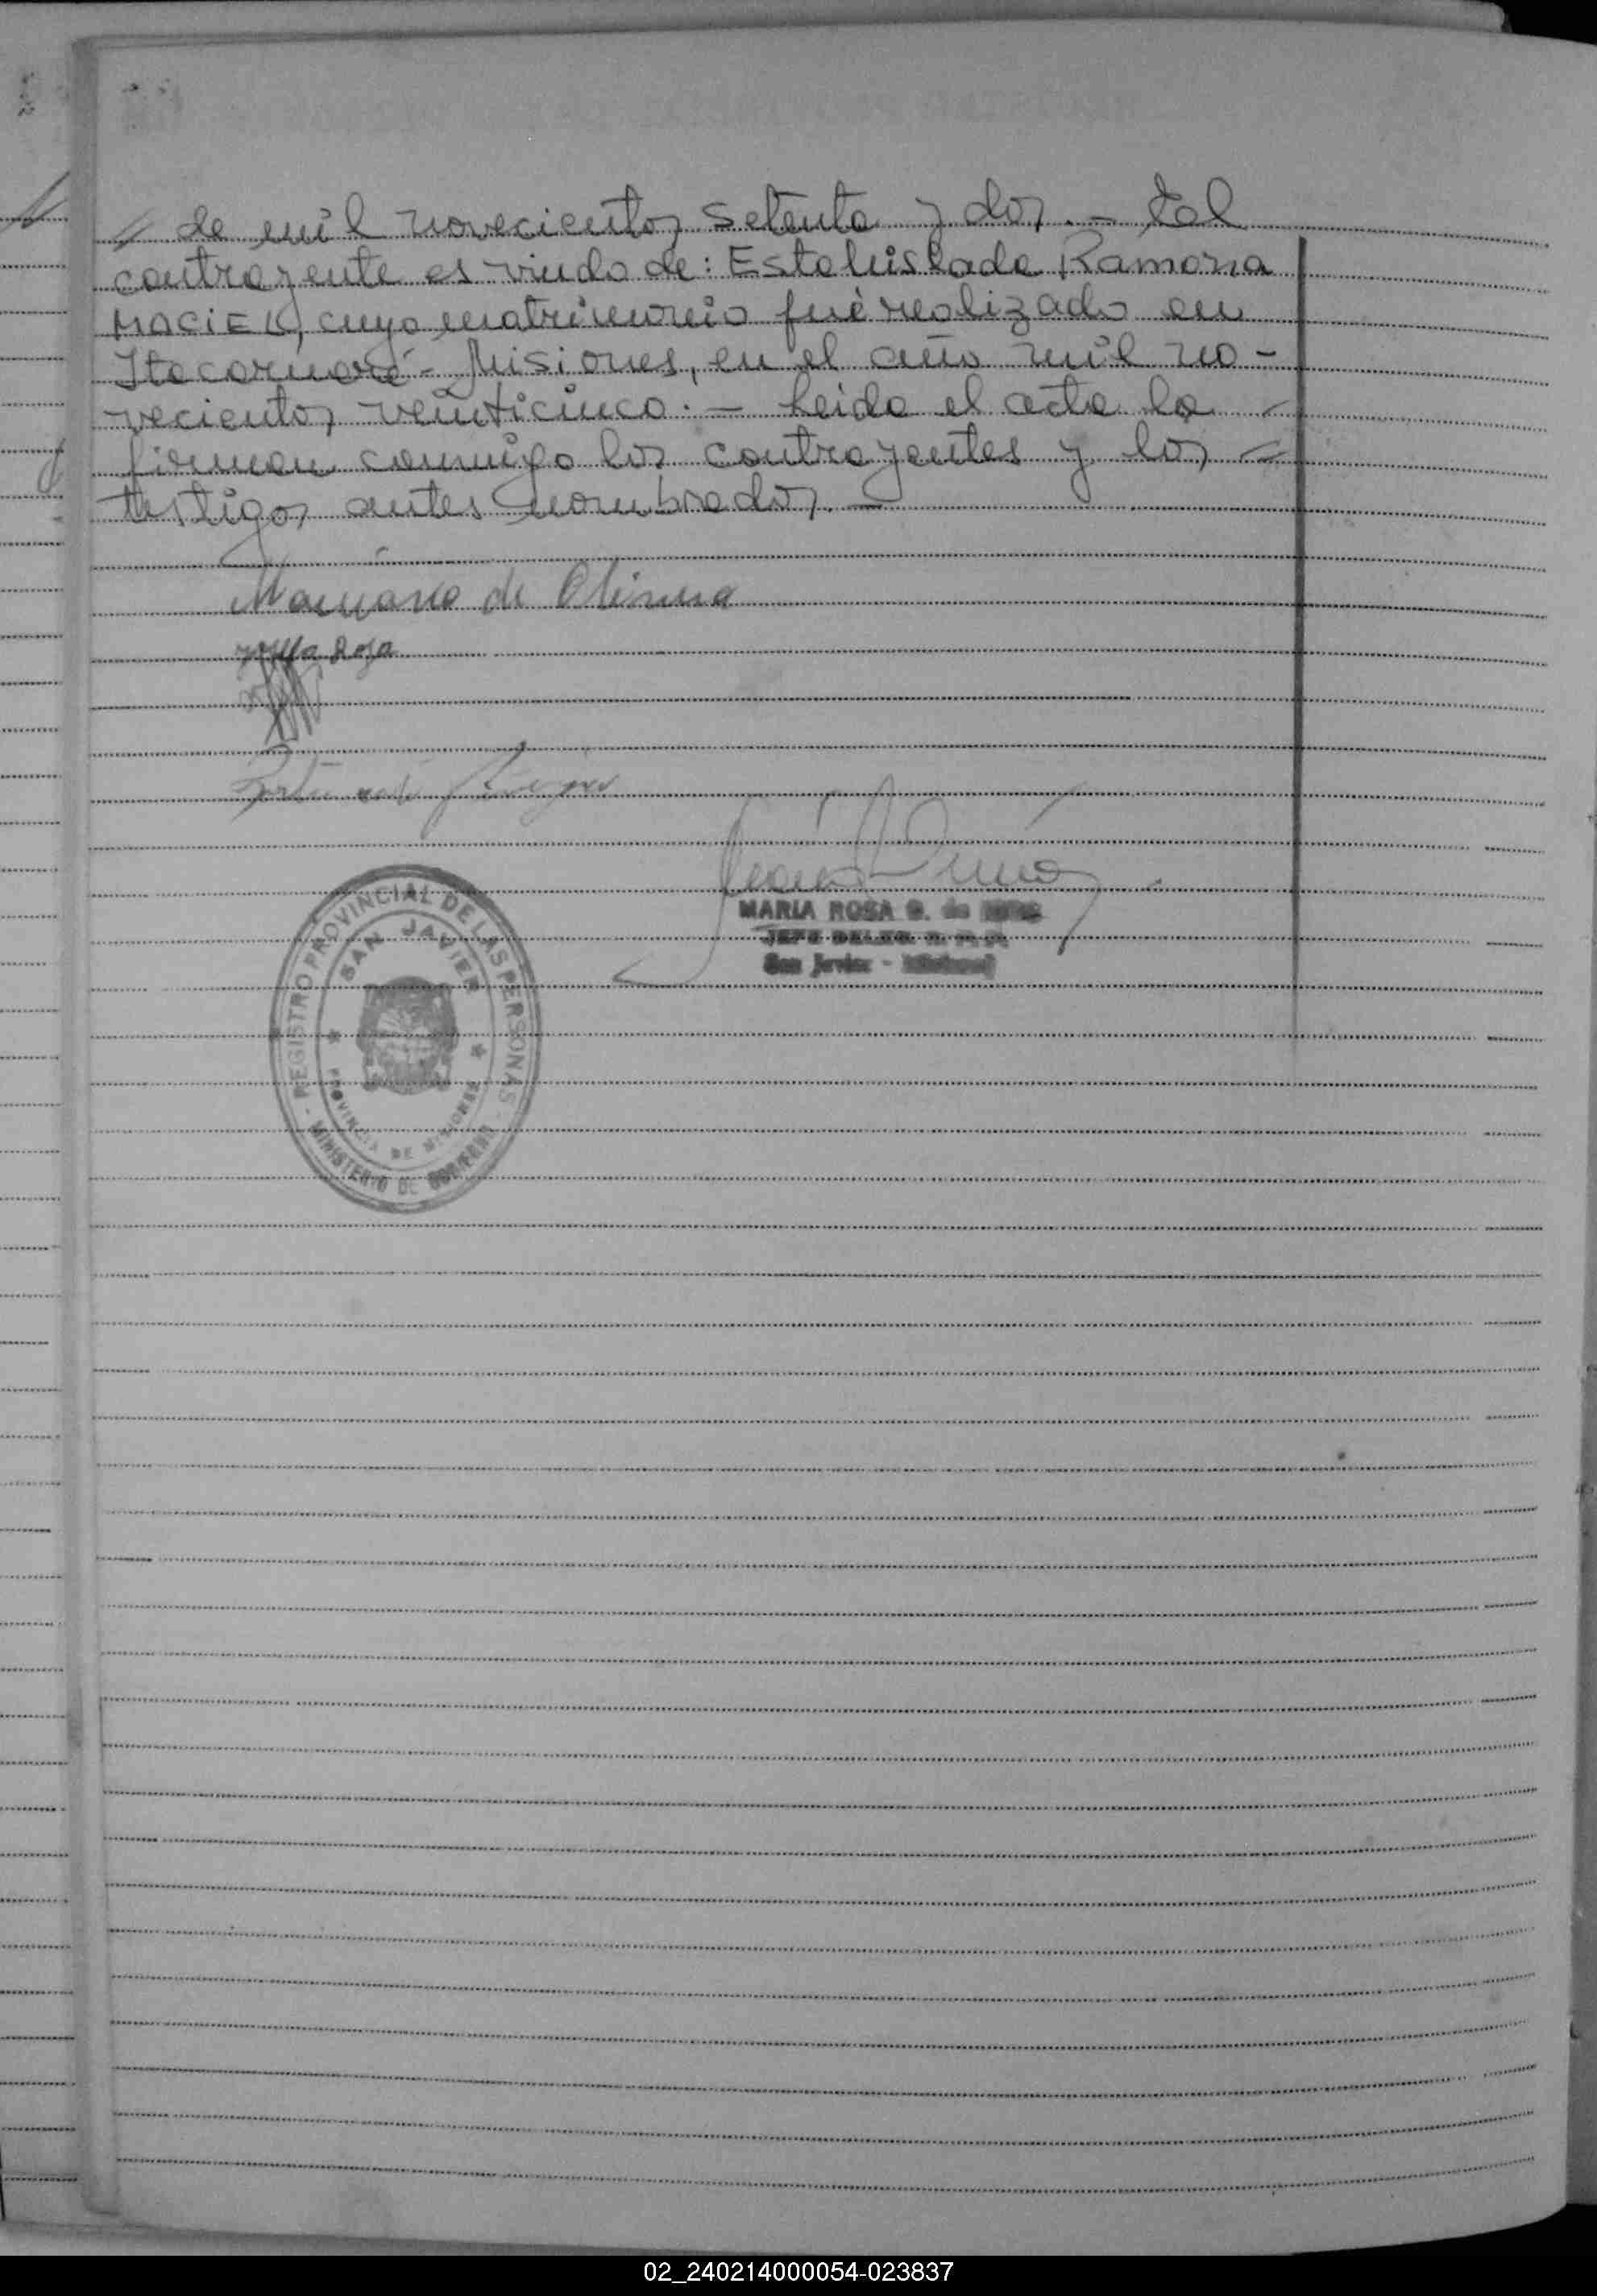 // de mil novecientos setenta y dos.- El
contrayente es viudo de: Estanislada Ramona
MACIEL, cuyo matrimonio fué realizado en
Itacaruaré - Misiones, en el año mil no-
vecientos veinticinco.- Leida el acta la -
firman conmigo los contrayentes y los -
testigos antes nombrados.-
Mariano de Olivera
Rosa
MARIA ROSA G. de
JEFE DELEG.
San Javier - Misiones
REGISTRO PROVINCIAL DE LAS PERSONAS
SAN JAVIER
PROVINCIA DE MISIONES
MINISTERIO DE GOBIERNO
02_240214000054-023837